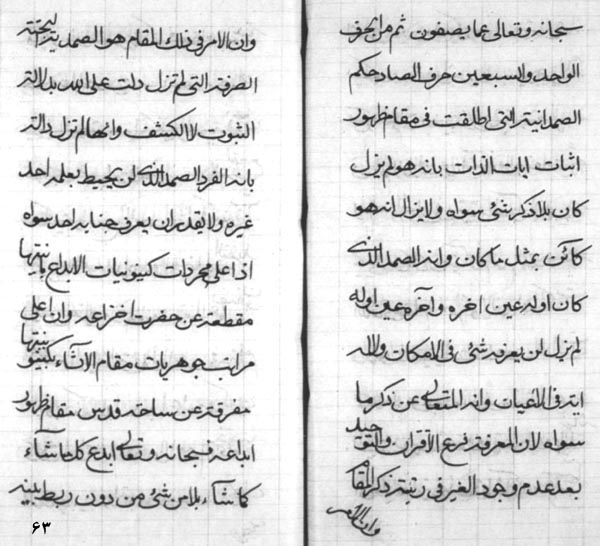 سبحانه وتعالى عما يصفون ثم من الحرف
الواحد والسبعين حرف الصاد حكم
الصمدانية التى اطلقت فى مقام ظهور
اثبات ايات الذات بانه هو لم يزل
كان بلا ذكر شئ سواه ولا يزال انه هو
كائن بمثل ما كان وانه الصمد الذى
كان اوله عين اخره وآخره عين اوله
لم يزل لن يعرفه شئ فى الامكان ولا له
اية فى الاعيان وانه المتعالى عن ذكر ما
سواه لان المعرفة فرع الأقران والتوحيد
بعد عدم وجود الغير فى رتبته ذكر المقام
وان الامر
وان الامر فى ذلك المقام هو الصمدية البحتة
الصرفة التى لم تزل دلت على الله بدلالة
الثبوت لا الكشف وانها لم تزل دالة
بانه الفرد الصمد الذى لن يحيط بعلمه احد
غيره ولا يقدر ان يعرف جنابه احد سواه
اذ اعلى مجردات كينونيات الابداع بانيتها
مقطعة عن حضرت اختراعه وان اعلى
مراتب جوهريات مقام الانشاء بكينونيتها
مفرقة عن ساحة قدس مقام ظهور
ابداعه فسبحانه وتعالى ابدع كلما شاء
كما شاء بلا من شئ من دون ربط بينه
۶۳